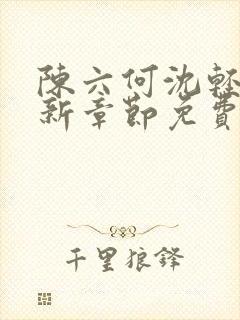 陳六何沈輕
新章節免費
千里狼鋒